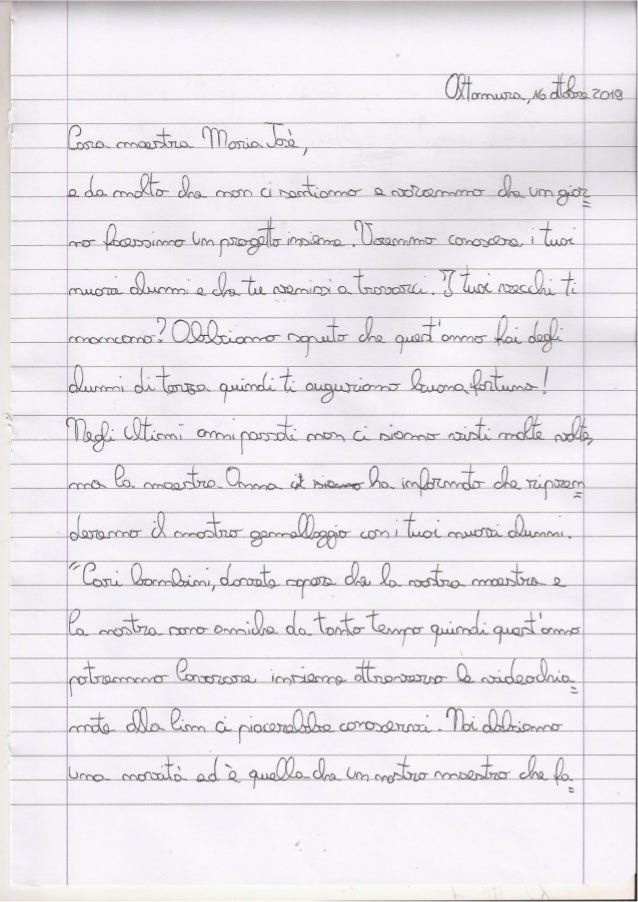 Altamura, 16 ottobre 2019
Cara maestra Maria Josè,
e da molto che non ci sentiamo e vorremmo che un gior=
no facessimo un progetto insieme. Vorremmo conoscere i tuoi
nuovi alunni e che tu venissi a trovarci. I tuoi vecchi ti
mancano? Abbiamo saputo che quest'anno hai degli
alunni di terza quindi ti auguriamo buona fortuna!
Negli ultimi anni passati non ci siamo visti molte volte,
ma la maestra Anna ci siamo ha informato che ripren=
deremo il nostro gemellaggio con i tuoi nuovi alunni.
"Cari bambini, dovete sapere che la vostra maestra e
la nostra sono amiche da tanto tempo quindi quest'anno
potremmo lavorare insieme attraverso le videochia=
mate alla lim ci piacerebbe conoscervi. Noi abbiamo
una novità ed è quella che un nostro maestro che fa=